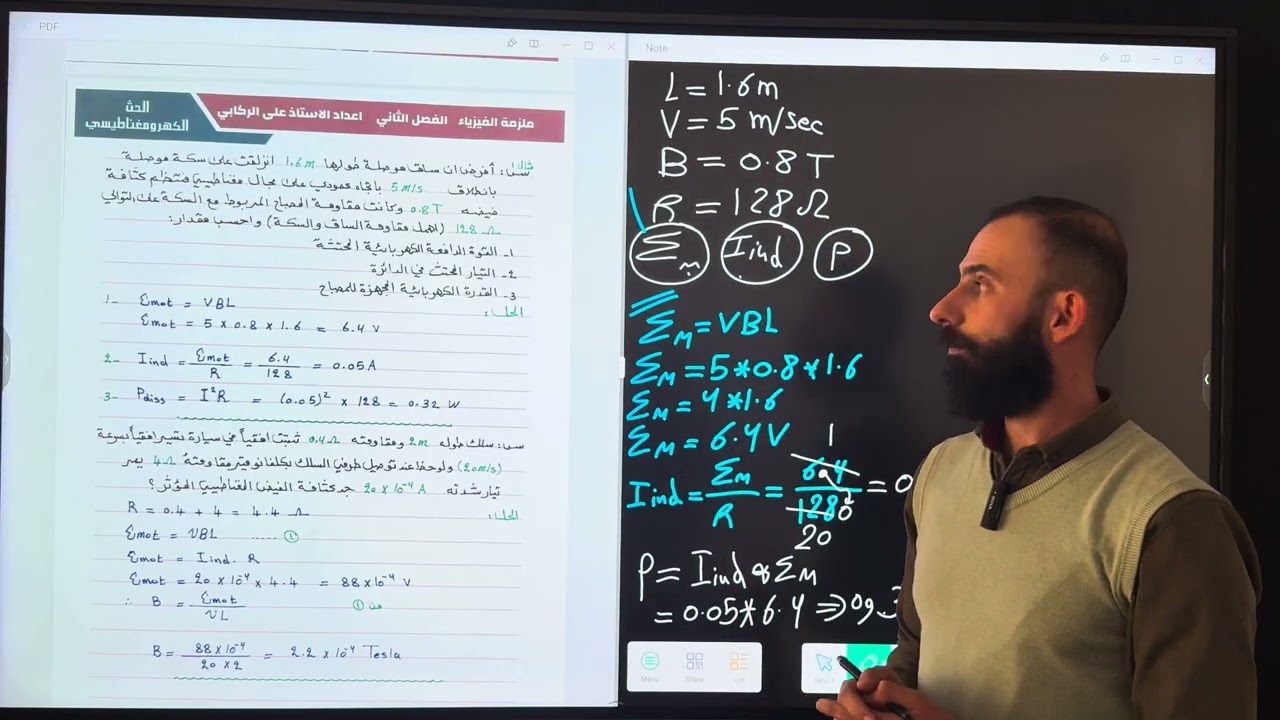 PDF
الحث
الكهرومغناطيسي
ملزمة الفيزياء الفصل الثاني اعداد الاستاذ علي الركابي
مثال١
س: أفرض ان ساق موصلة طولها 1.6m انزلقت على سكة موصلة
بانطلاق 5m/s باتجاه عمودي على مجال مغناطيسي منتظم كثافة
فيضه 0.8T وكانت مقاومة المصباح المربوط مع السكة على التوالي
128Ω (اهمل مقاومة الساق والسكة) واحسب مقدار:
1- القوة الدافعة الكهربائية المحتثة
2- التيار المحتث في الدائرة
3- القدرة الكهربائية المجهزة للمصباح
الحل:
1- Ɛmot = VBL
Ɛmot = 5 x 0.8 x 1.6 = 6.4 V
2- Iind = Ɛmot / R = 6.4 / 128 = 0.05 A
3- Pdiss = I²R = (0.05)² x 128 = 0.32 W
س: سلك طوله 2m ومقاومته 0.4Ω ثبت افقياً في سيارة تسير افقياً بسرعة
(20m/s) ولوحظ عند توصيل طرفي السلك بكلفانوميتر مقاومته 4Ω يمر
تيار شدته 20 x 10⁻⁴ A جد كثافة الفيض المغناطيسي المؤثر؟
الحل:
R = 0.4 + 4 = 4.4 Ω
Ɛmot = VBL ..... ①
Ɛmot = Iind. R
Ɛmot = 20 x 10⁻⁴ x 4.4 = 88 x 10⁻⁴ V
∴ B = Ɛmot / VL من ①
B = 88 x 10⁻⁴ / 20 x 2 = 2.2 x 10⁻⁴ Tesla
Note
L = 1.6m
V = 5 m/sec
B = 0.8 T
R = 128 Ω
Ɛm Iind P
ƐM = VBL
ƐM = 5*0.8*1.6
ƐM = 4*1.6
ƐM = 6.4V
1
Iind = ƐM / R = 6.4 / 1280 = 0
20
P = Iind * ƐM
= 0.05*6.4 ⇒
Menu
Share
List
Select